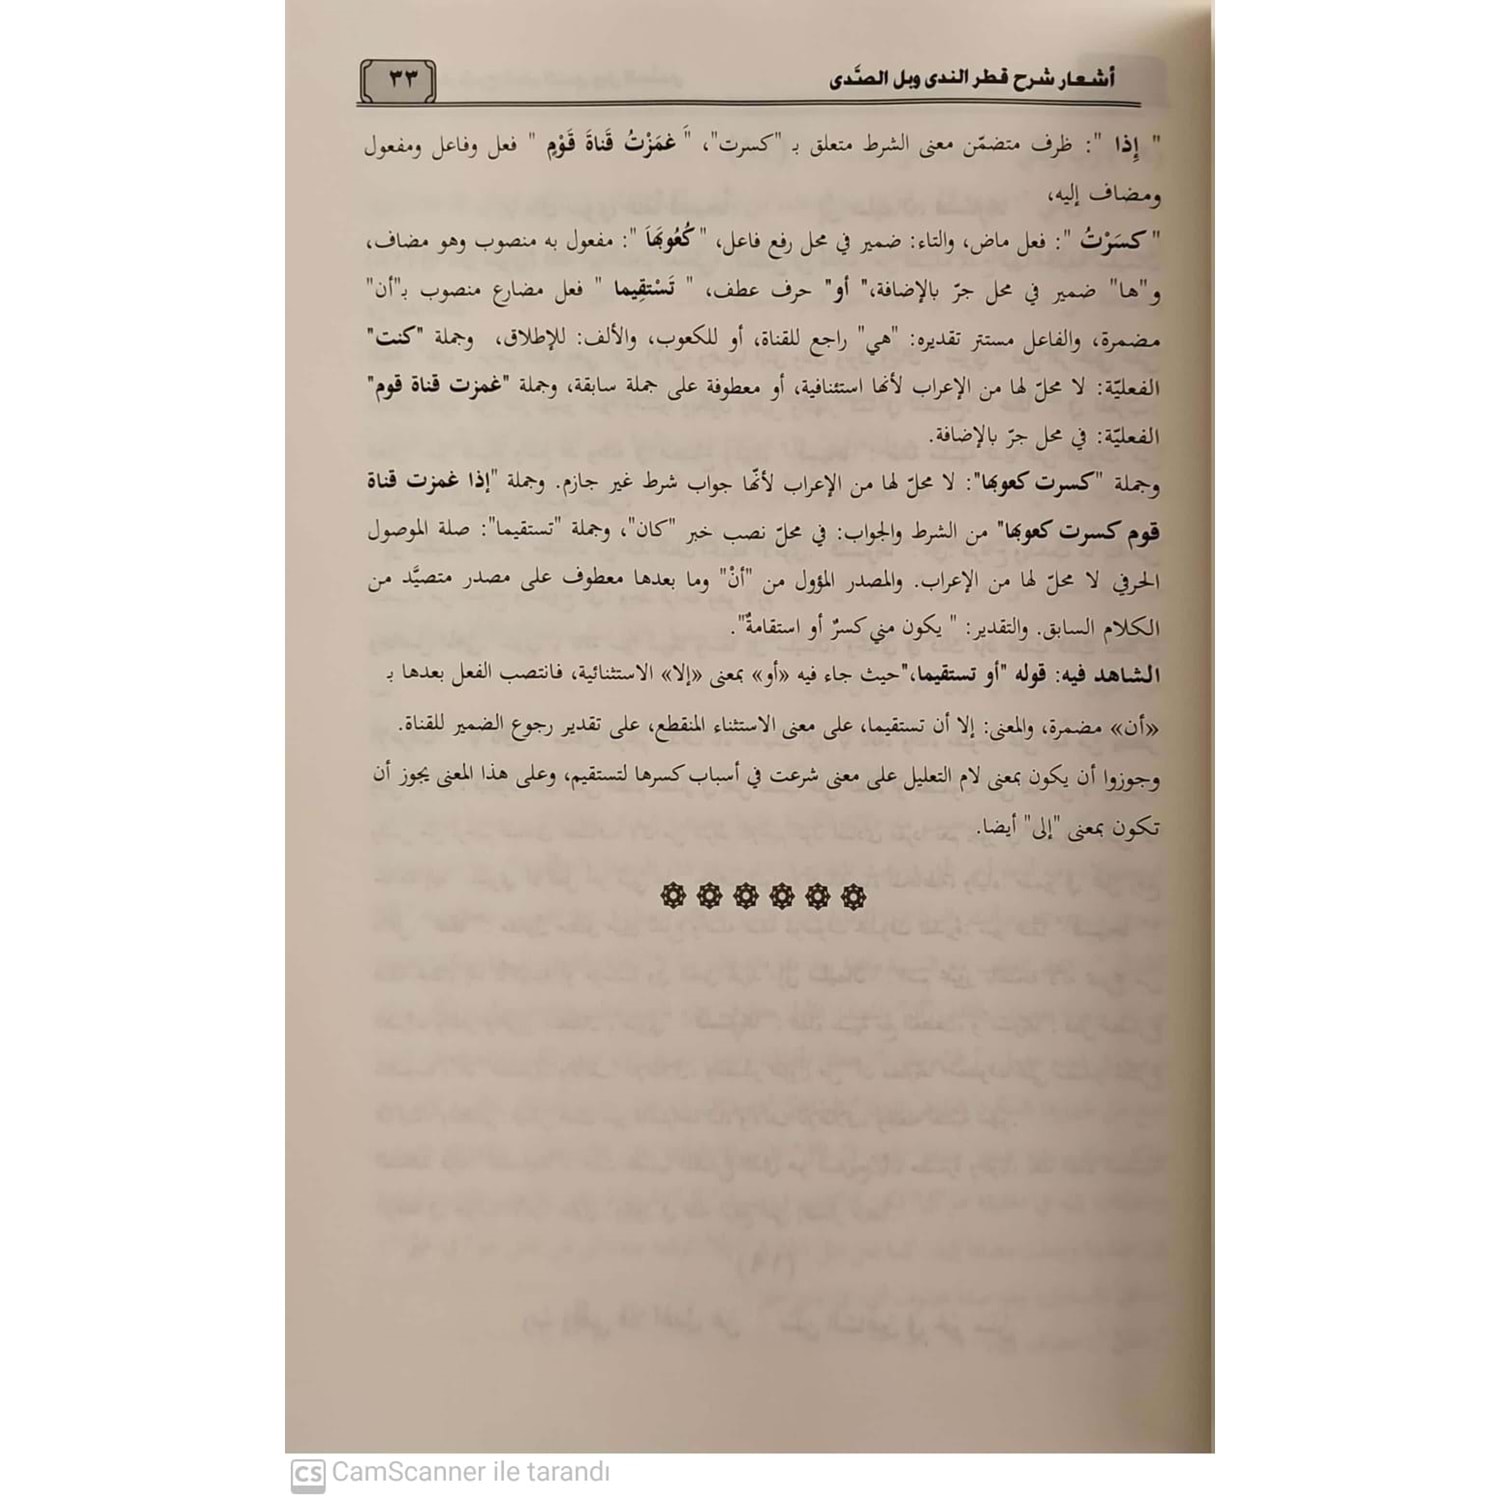 أشعار شرح قطر الندى وبل الصَّدى
٣٣
" إِذا ": ظرف متضمّن معنى الشرط متعلق بـ "كسرت"، " غمَزْتُ قَناةَ قَوْمٍ " فعل وفاعل ومفعول
ومضاف إليه،
" كسَرْتُ ": فعل ماض، والتاء: ضمير في محل رفع فاعل، " كُعُوبَهَا ": مفعول به منصوب وهو مضاف،
و"ها" ضمير في محل جرّ بالإضافة،" أو" حرف عطف، " تَسْتقِيما " فعل مضارع منصوب بـ"أن"
مضمرة، والفاعل مستتر تقديره: "هي" راجع للقناة، أو للكعوب، والألف: للإطلاق، وجملة "كنت"
الفعليّة: لا محلّ لها من الإعراب لأنها استئنافية، أو معطوفة على جملة سابقة، وجملة "غمزت قناة قوم"
الفعليّة: في محل جرّ بالإضافة.
وجملة "كسرت كعوبها": لا محلّ لها من الإعراب لأنّها جواب شرط غير جازم. وجملة "إذا غمزت قناة
قوم كسرت كعوبها" من الشرط والجواب: في محلّ نصب خبر "كان"، وجملة "تستقيما": صلة الموصول
الحرفي لا محلّ لها من الإعراب. والمصدر المؤول من "أنْ" وما بعدها معطوف على مصدر متصيَّد من
الكلام السابق. والتقدير: " يكون مني كسرٌ أو استقامةٌ".
الشاهد فيه: قوله "أو تستقيما،"حيث جاء فيه «أو» بمعنى «إلا» الاستثنائية، فانتصب الفعل بعدها بـ
«أن» مضمرة، والمعنى: إلا أن تستقيما، على معنى الاستثناء المنقطع، على تقدير رجوع الضمير للقناة.
وجوزوا أن يكون بمعنى لام التعليل على معنى شرعت في أسباب كسرها لتستقيم، وعلى هذا المعنى يجوز أن
تكون بمعنى "إلى" أيضا.
CS CamScanner ile tarandı